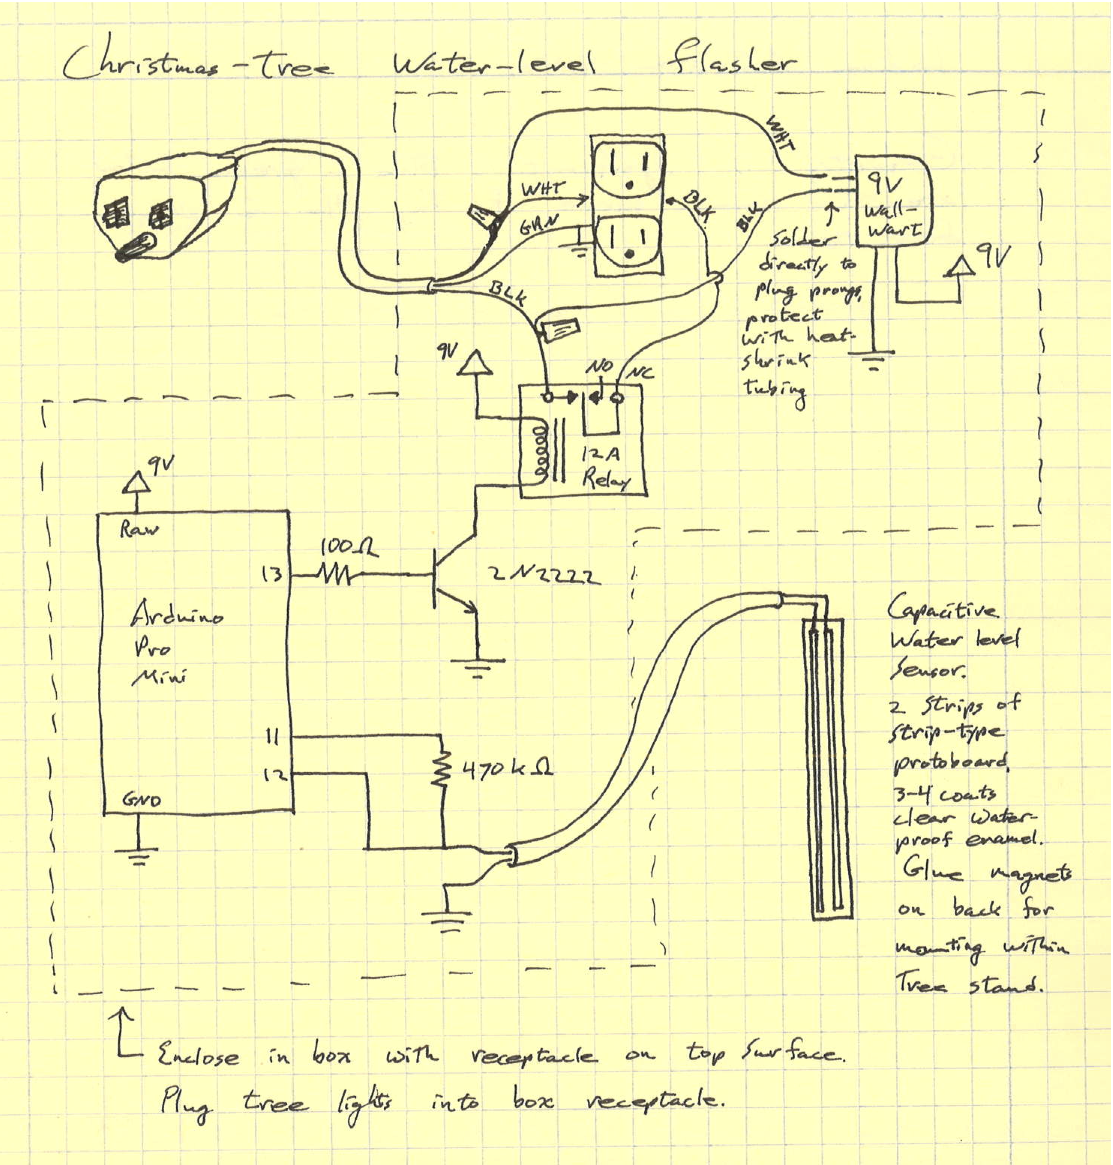 Christmas-Tree Water-level flasher
WHT
WHT
GRN
BLK
BLK
BLK
9V
Wall-
wart
9V
Solder
directly to
plug prongs,
protect
with heat-
shrink
tubing
9V
NO NC
12A
Relay
9V
Raw
13
100Ω
2N2222
Arduino
Pro
Mini
11
12
470kΩ
GND
Capacitive
Water level
Sensor.
2 Strips of
strip-type
protoboard,
3-4 coats
clear water-
proof enamel.
Glue magnets
on back for
mounting within
Tree stand.
Enclose in box with receptacle on top surface.
Plug tree lights into box receptacle.